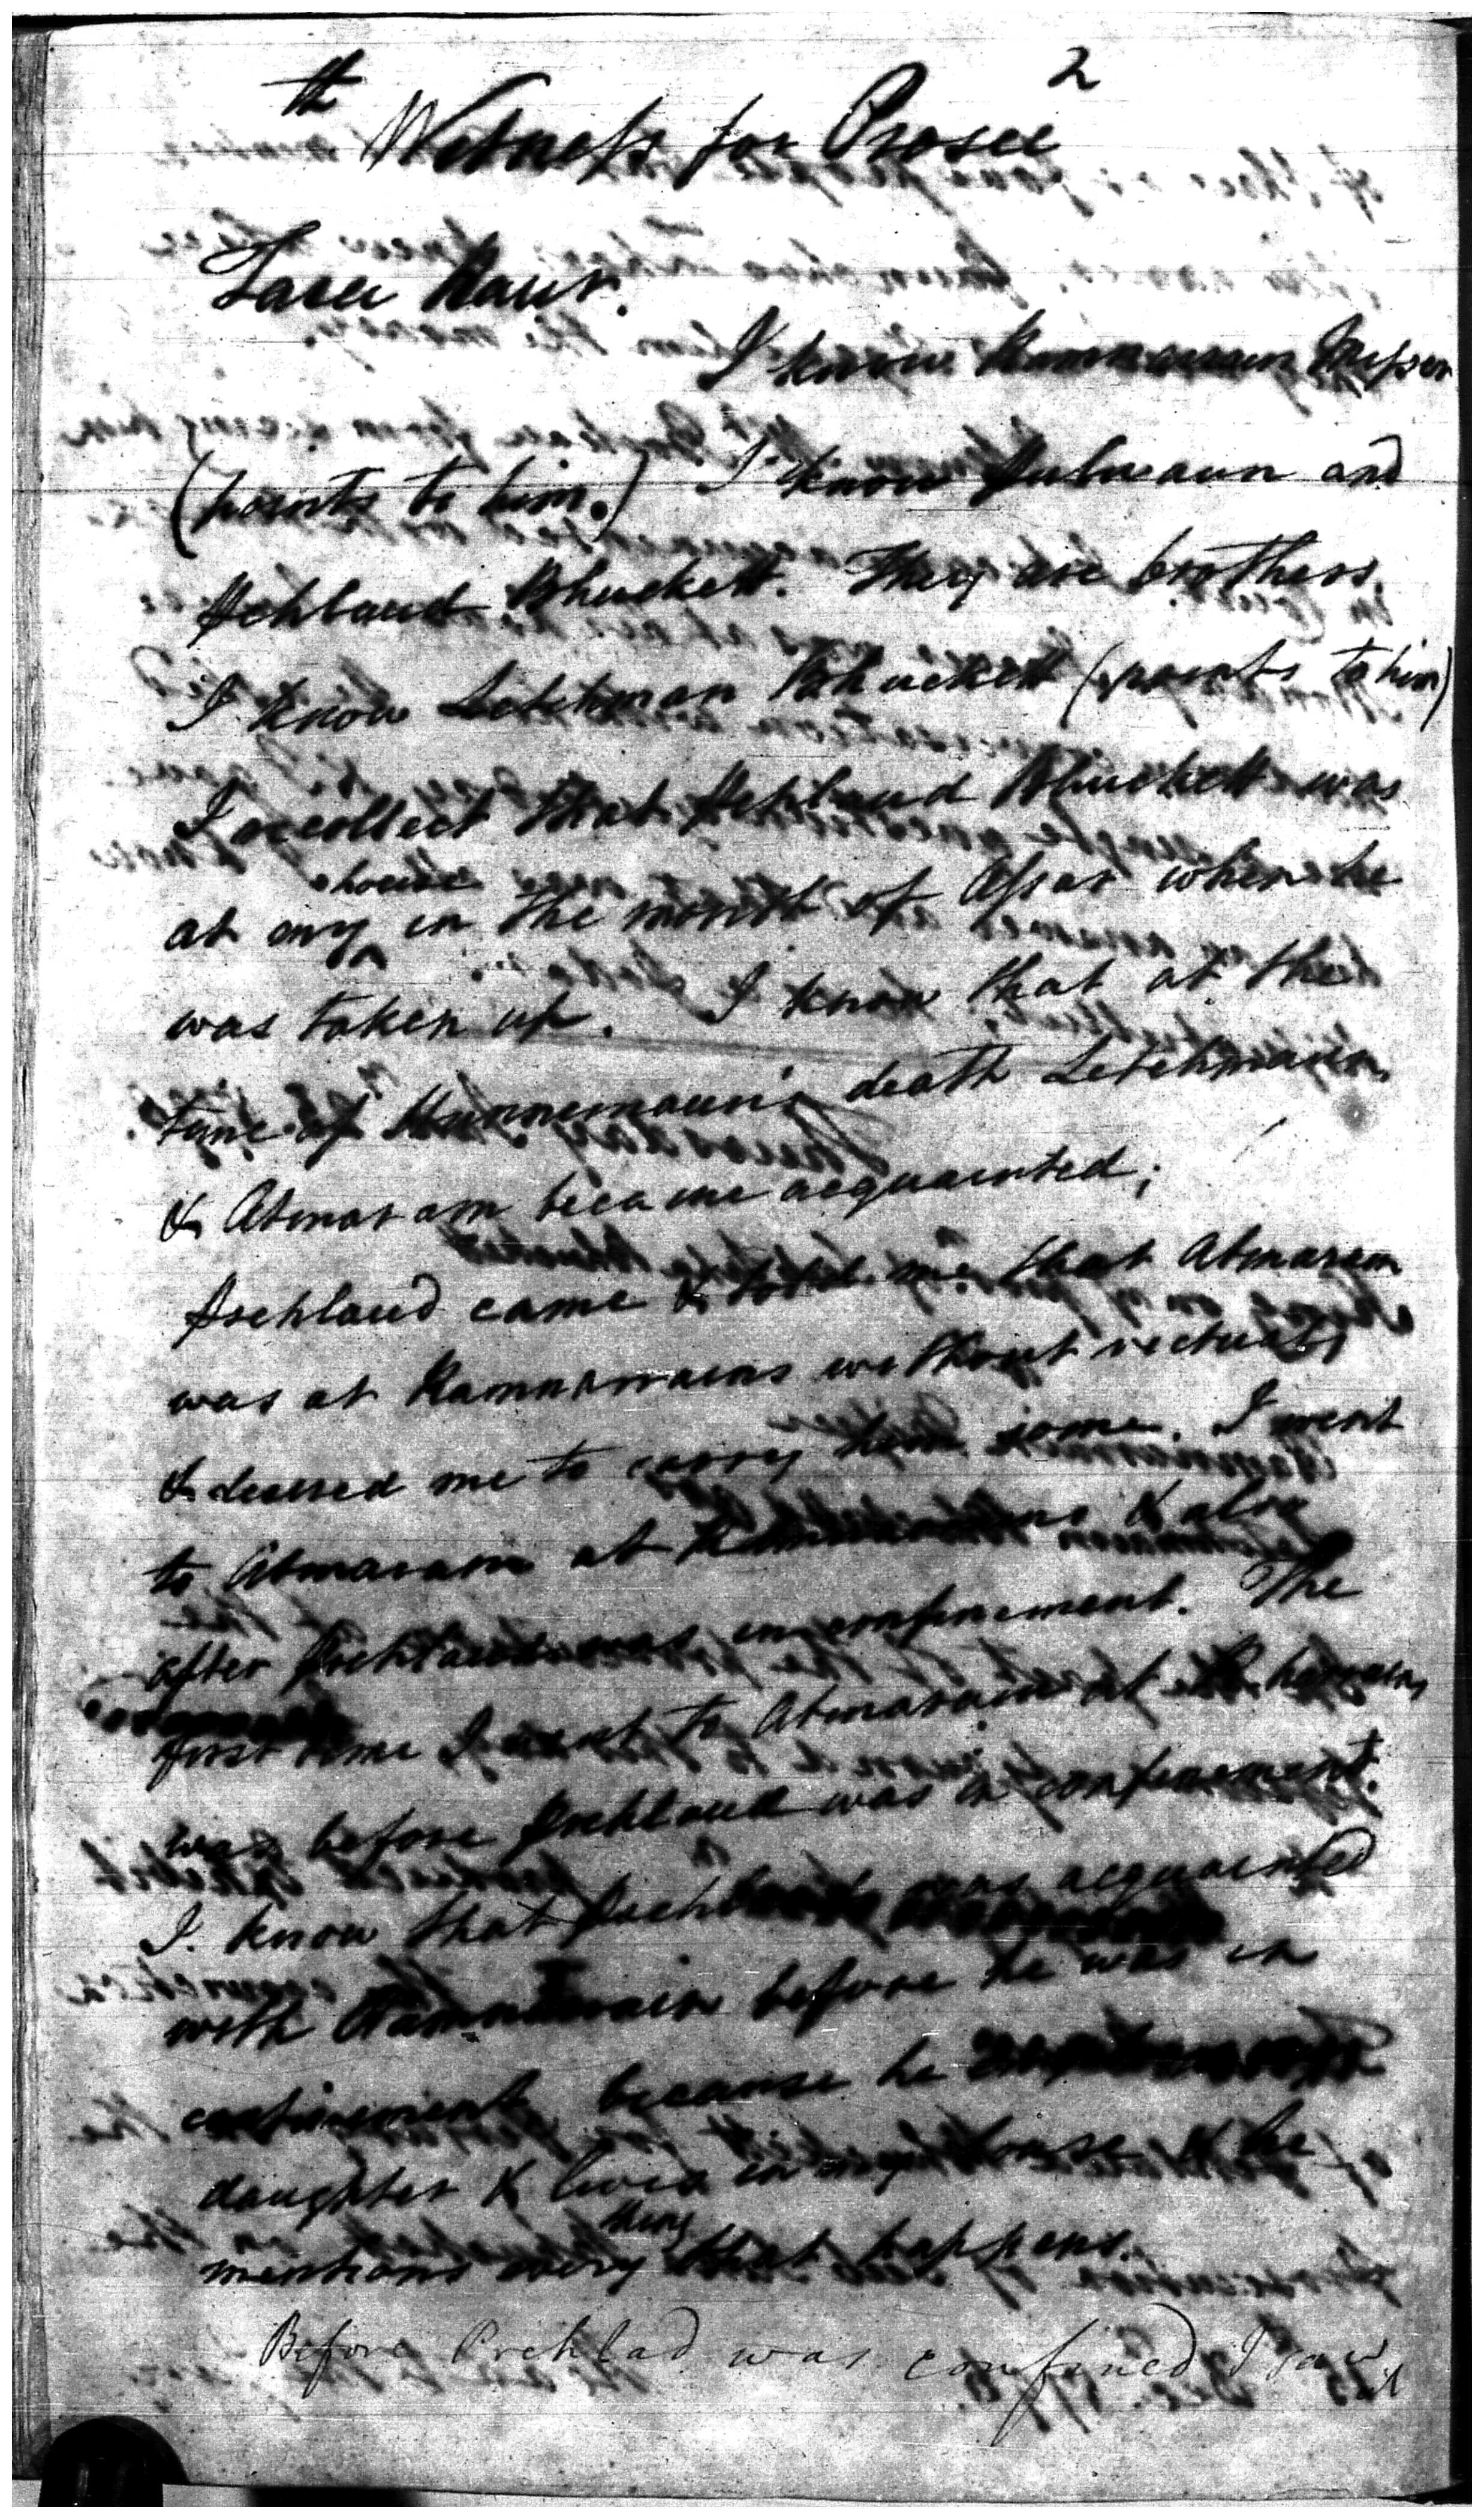 th 2
Witness for Prosec
Taser Raur.
I know Ramnarrain Misser
(points to him.) I know Hulmaun and
Pehlaud Bhuckett. They are brothers.
I know Letchman Bhuckett (points to him)
I recollect that Pehlaud Bhuckett was
house
at my ^ in the month of Assar when he
was taken up. I know that at the
tyme of Hunnemaun's death Letchmaun
& Atmaram became acquainted;
Prehlaud came & told me that Atmaram
was at Ramnarrains without victuals
& desired me to carry him some. I went
to Atmaram at & also
after Prehlaud was in confinement. The
first time I went to Atmaram at R. harrains
was before Prehlaud was in confinement.
I know that Prehlaud was acquainted
with Ramnarrain before he was in
confinement because he
daughter & lives in my house & he
thing
mentions every that happens.
Before Prehlad was confined I saw